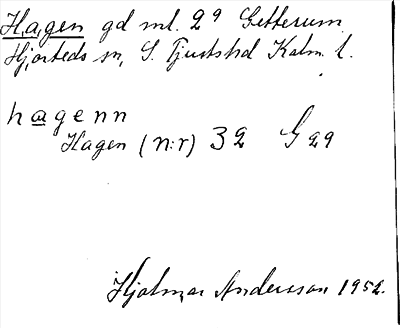 Hagen gd ml. 2⁹ Getterum
Hjorteds sn, S. Tjusts hd Kalm. l.
hagenn
Hagen (n:r) 32 G 29
Hjalmar Andersson 1952.